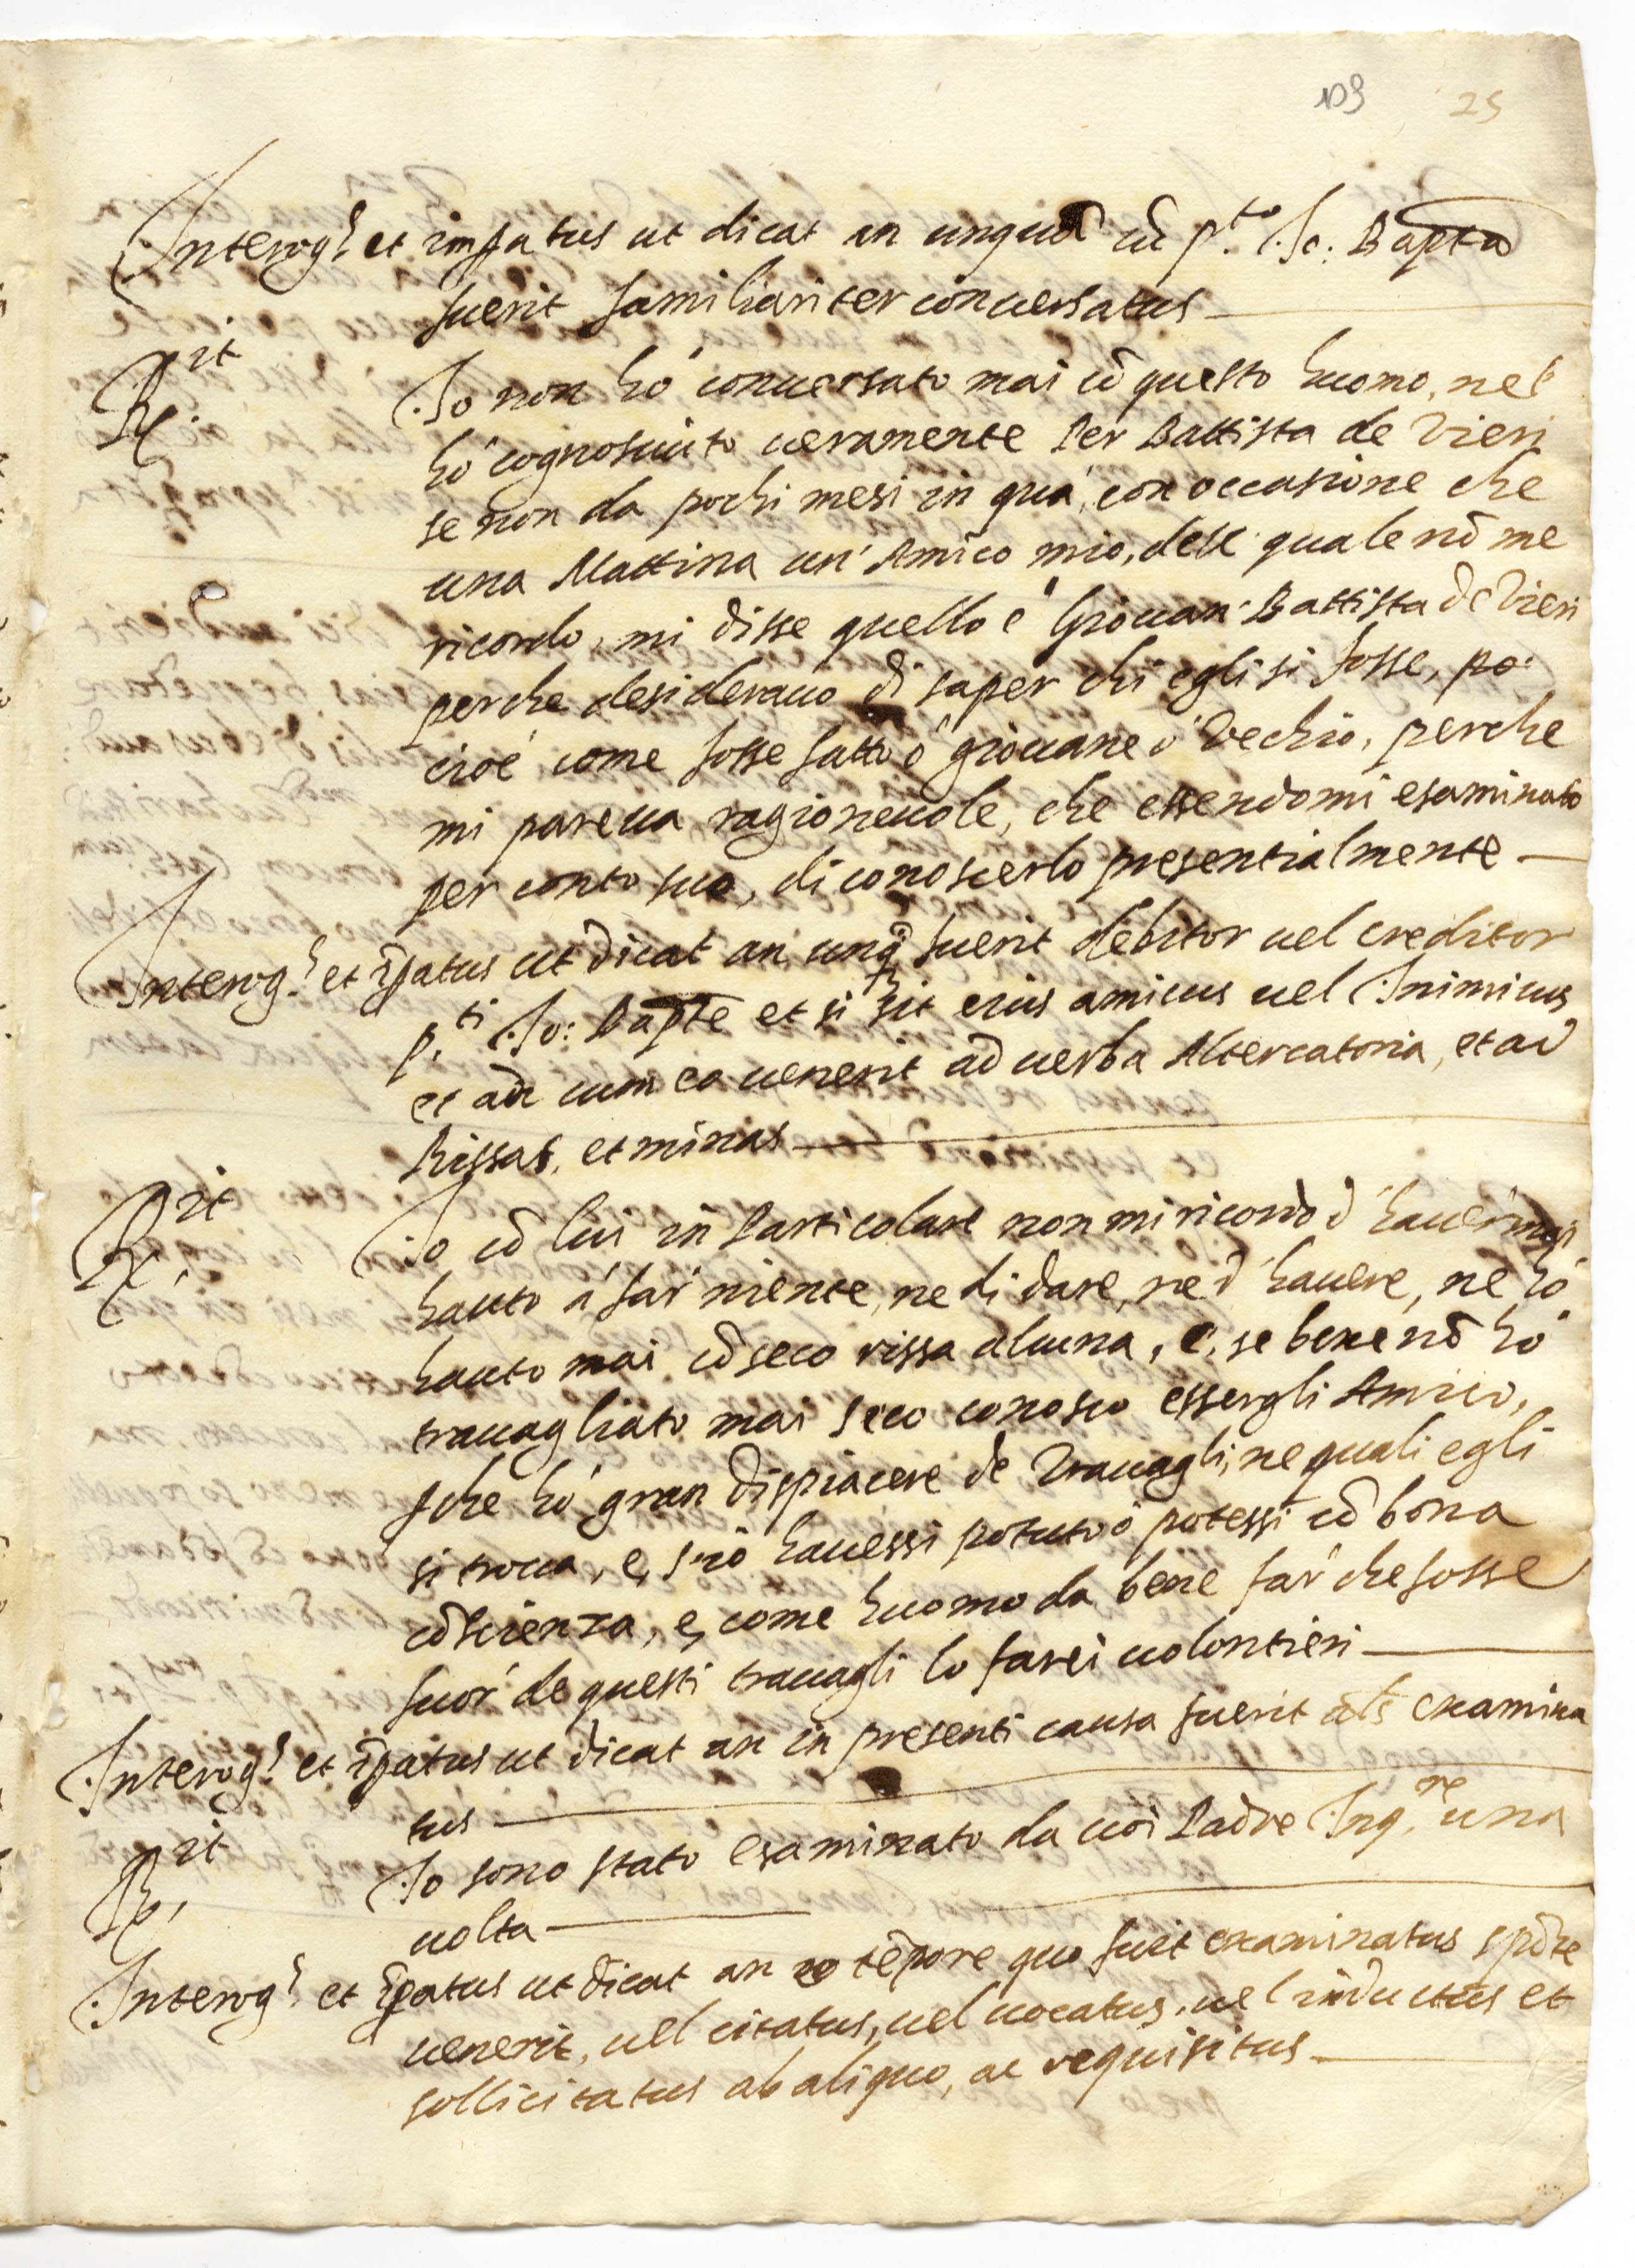 109 25
Interog.s et impatus ut dicat an unquā cū p.to Jo: Bapta
fuerit familiariter conuersatus
R.it Io non hò conuersato mai cō questo huomo, nel
hò cognosciuto ueramente Per Battista de Vieri
se non da pochi mesi in quà, con occasione che
una Mattina un' Amico mio, dell quale nō me
ricordo, mi disse quello è Giouan' Battista de Vieri
perche desiderauo di saper chi egli si fosse, po:
cioè come fosse fatto ò giouane ò Vechio, perche
mi pareua ragioneuole, che essendomi esaminato
per conto suo, di conoscerlo presentialmente
Interog.s et īpatus ut dicat an unq̄ fuerit debitor uel creditor
p.ti Jo: Bapte et si sit eius amicus uel Inimicus
et an cum eo uenerit ad uerba Altercatoria, et ad
Rissas, et minas
R.it Io cō lui in Particolare non mi ricordo d' hauer' mai
hauto à far' niente, ne di dare, ne d' hauere, ne hò
hauto mai cō seco rissa alcuna, e, se bene nō hò
trauagliato mai seco conosco essergli Amico,
pche hò gran dispiacere de Trauagli, ne quali egli
si troua, e, s'io hauessi potuto ò potessi cō bona
cōscienza, e, come huomo da bene far' che fosse
fuor' de questi trauagli lo farei uolontieri
Interog.s et īpatus ut dicat an in presenti causa fuerit als examina
tus
R.it Io sono stato esaminato da uoi Padre Inq.re una
uolta
Interog.s et īpatus ut dicat an eo tēpore quo fuit examinatus spōte
uenerit, uel citatus, uel uocatus, uel inductus et
sollicitatus ab aliquo, ac requisitus